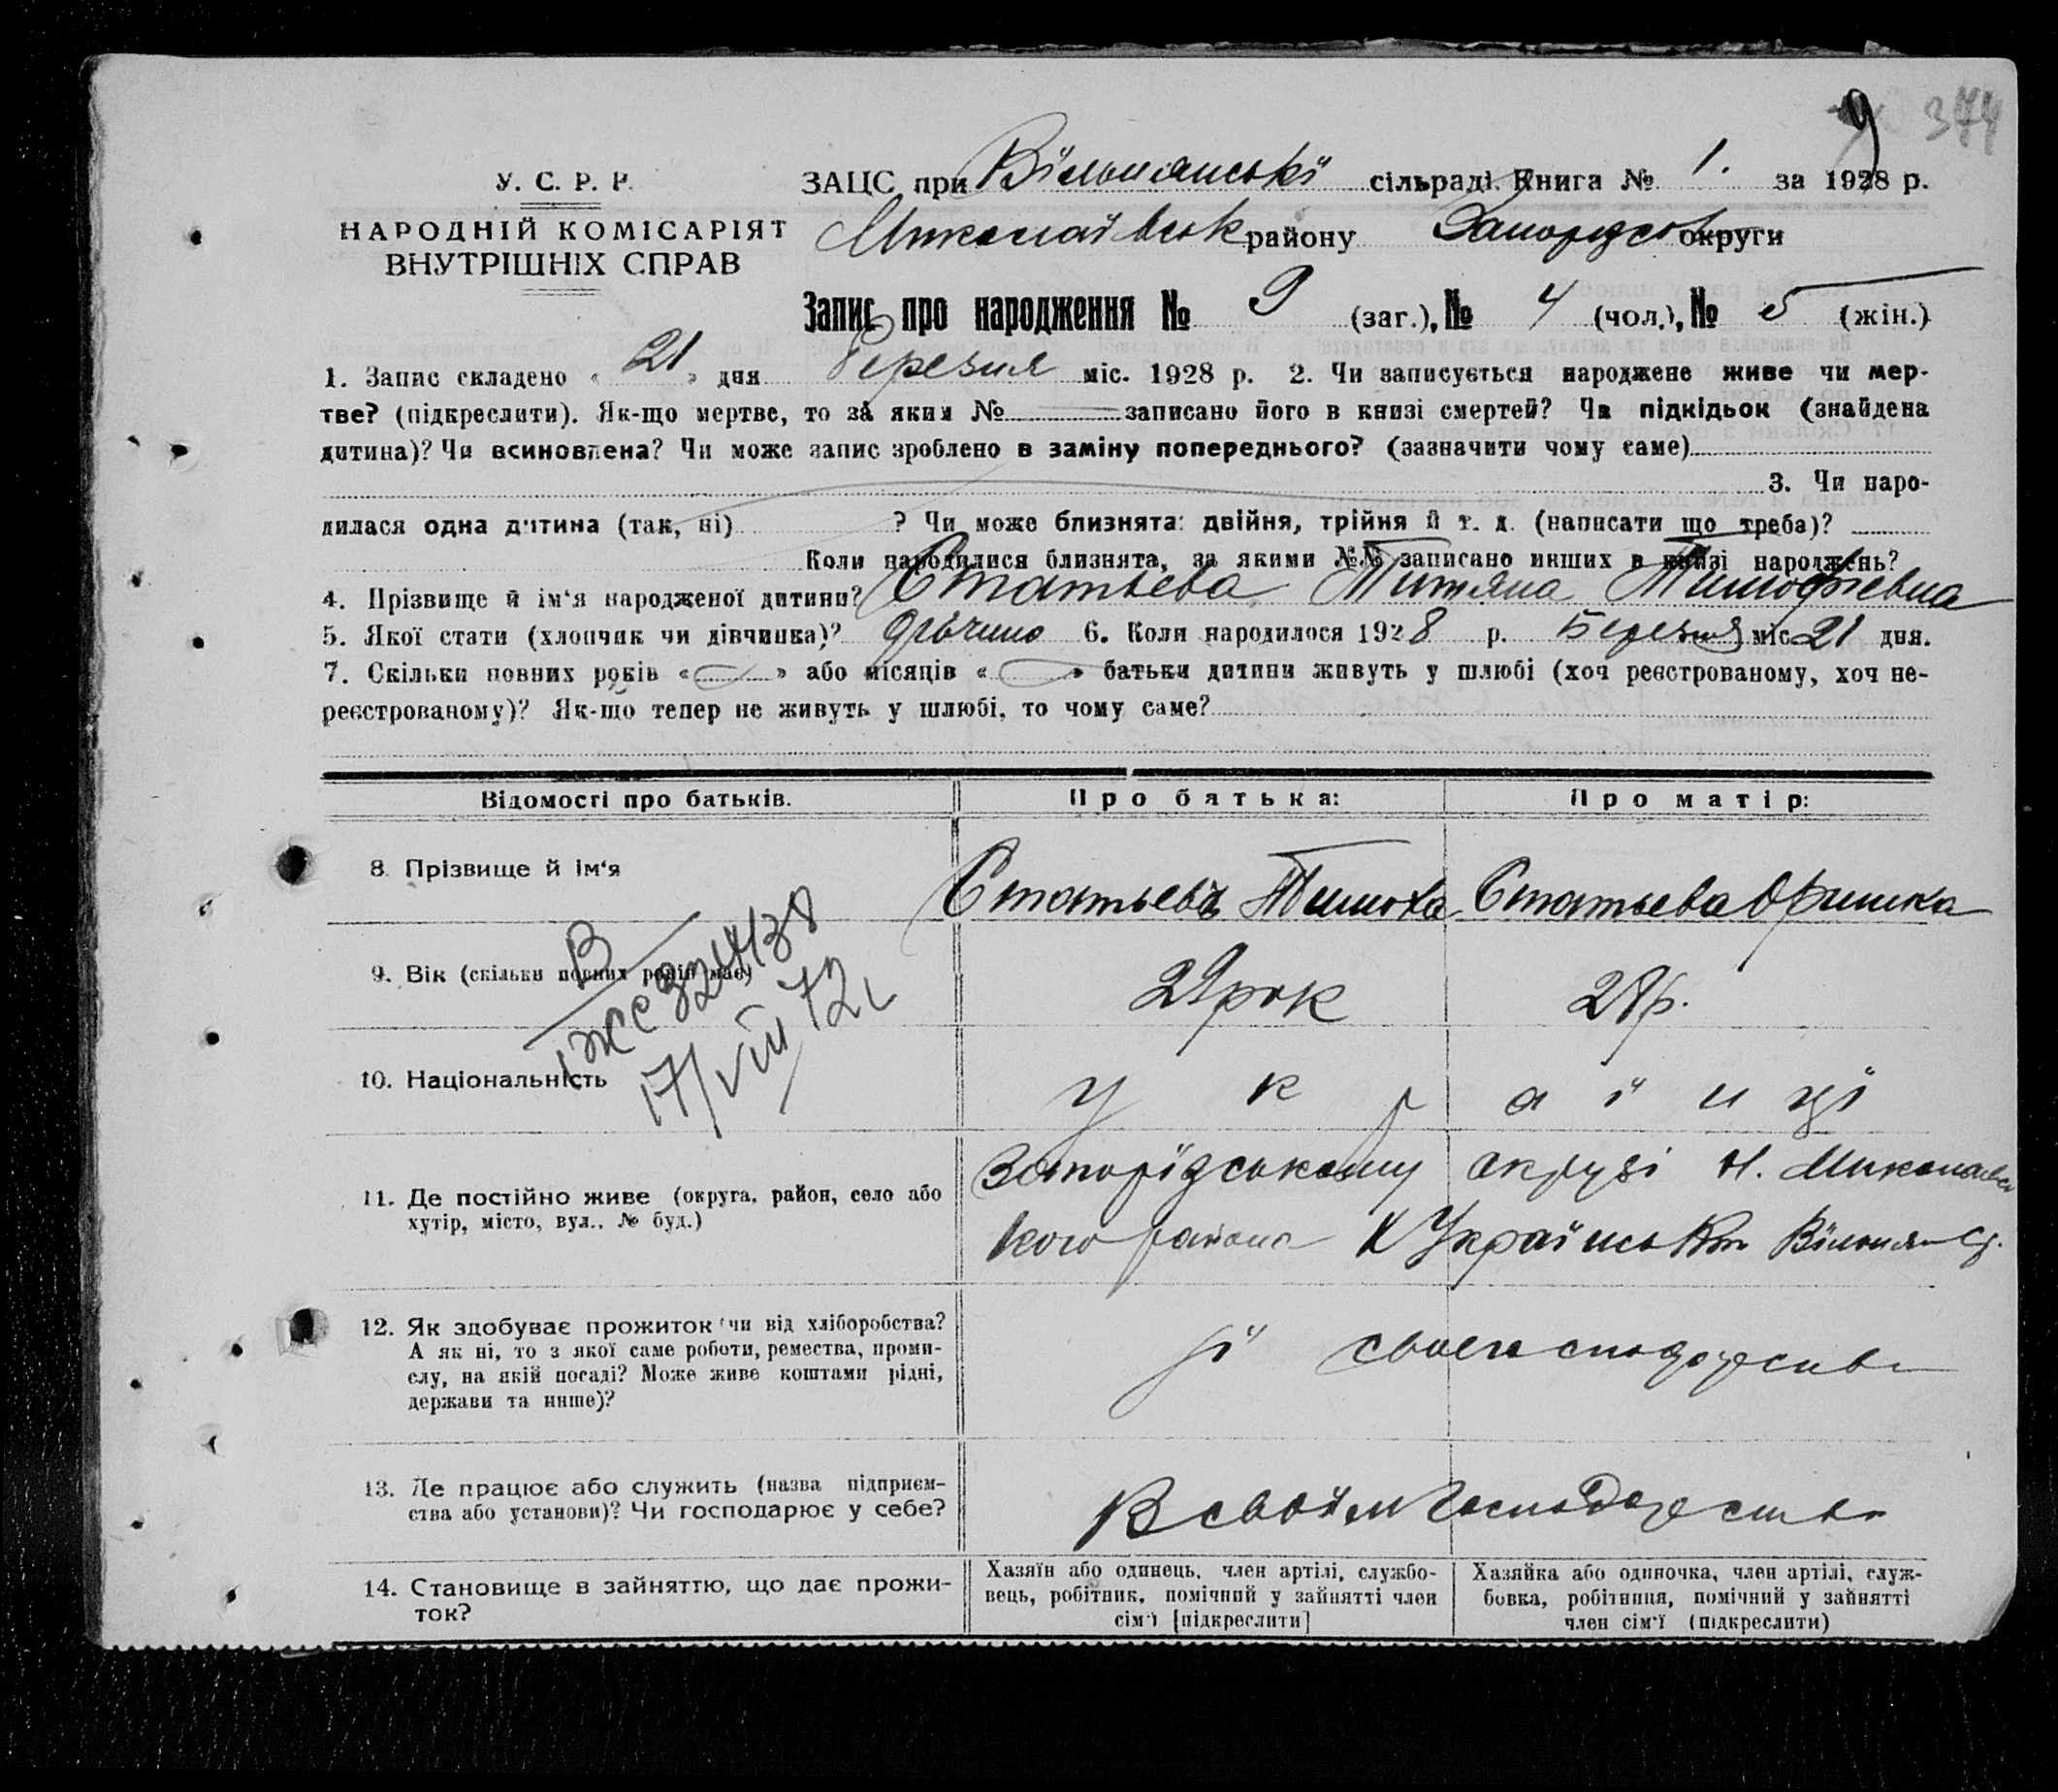 9 374
У. С. Р. Р. ЗАЦС при Вільнянські сільраді. Книга № 1. за 1928 р.
НАРОДНІЙ КОМІСАРІЯТ
ВНУТРІШНІХ СПРАВ
Миколаївськ району округи
Запис про народження № 9 (заг.), № 4 (чол.), № 5 (жін.)
1. Запис складено « 21 » дня Березня міс. 1928 р. 2. Чи записується народжене живе чи мер-
тве? (підкреслити). Як-що мертве, то за яким № записано його в книзі смертей? Чи підкідьок (знайдена
дитина)? Чи всиновлена? Чи може запис зроблено в заміну попереднього? (зазначити чому саме)
3. Чи наро-
дилася одна дитина (так, ні) ? Чи може близнята: двійня, трійня й т. д. (написати що треба)?
Коли народилися близнята, за якими №№ записано инших в книзі народжень?
4. Прізвище й ім‘я народженої дитини? Статьева Титяна Тимофіевна
5. Якої стати (хлопчик чи дівчинка)? 6. Коли народилося 1928 р. Березня міс 21 дня.
7. Скільки повних років « » або місяців « » батьки дитини живуть у шлюбі (хоч реєстрованому, хоч не-
реєстрованому)? Як-що тепер не живуть у шлюбі, то чому саме?
Відомості про батьків. Про батька: Про матір:
8. Прізвище й ім‘я Статьевъ Тимоха Статьева Оришка
9. Вік (скільки повних років має) 29 рок 28 р.
В
1 ЖС 324138
17/VIII 72
10. Національність у к р а ї н ці
11. Де постійно живе (округа, район, село або
хутір, місто, вул., № буд.)
Запорідському окрузі Н. Миколаевсь
кого района Х Українськ Вільнян с/р.
12. Як здобуває прожиток чи від хліборобства?
А як ні, то з якої саме роботи, ремества, проми-
слу, на якій посаді? Може живе коштами рідні,
держави та инше)?
13. Де працює або служить (назва підприєм-
ства або установи)? Чи господарює у себе?
В своїм господарстви
14. Становище в зайняттю, що дає прожи-
ток?
Хазяїн або одинець, член артілі, службо-
вець, робітник, помічний у зайнятті член
сім‘ї [підкреслити]
Хазяйка або одиночка, член артілі, служ-
бовка, робітниця, помічний у зайнятті
член сім‘ї (підкреслити)